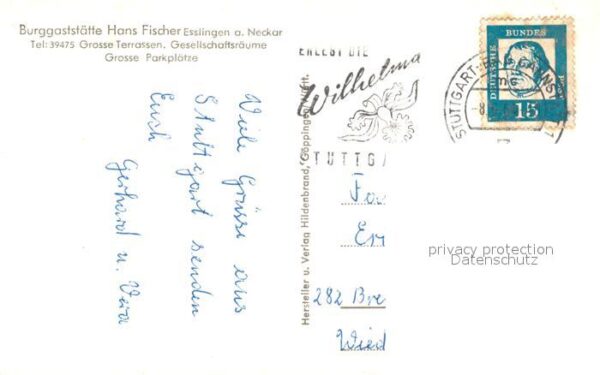 Burggaststätte Hans Fischer Esslingen a. Neckar
Tel: 39475 Grosse Terrassen, Gesellschaftsräume
Grosse Parkplätze
Viele Grüsse aus
Stuttgart senden
Euch
Gerhard u. Vera
Hersteller u. Verlag Hildenbrand, Göppingen/Württ.
ERLEBT DIE
Wilhelma
STUTTGA
DEUTSCHE
BUNDES
15
STUTTGART-BAD CANNST
mc
-8.
Fa
Em
282 Bre
Wied
privacy protection
Datenschutz